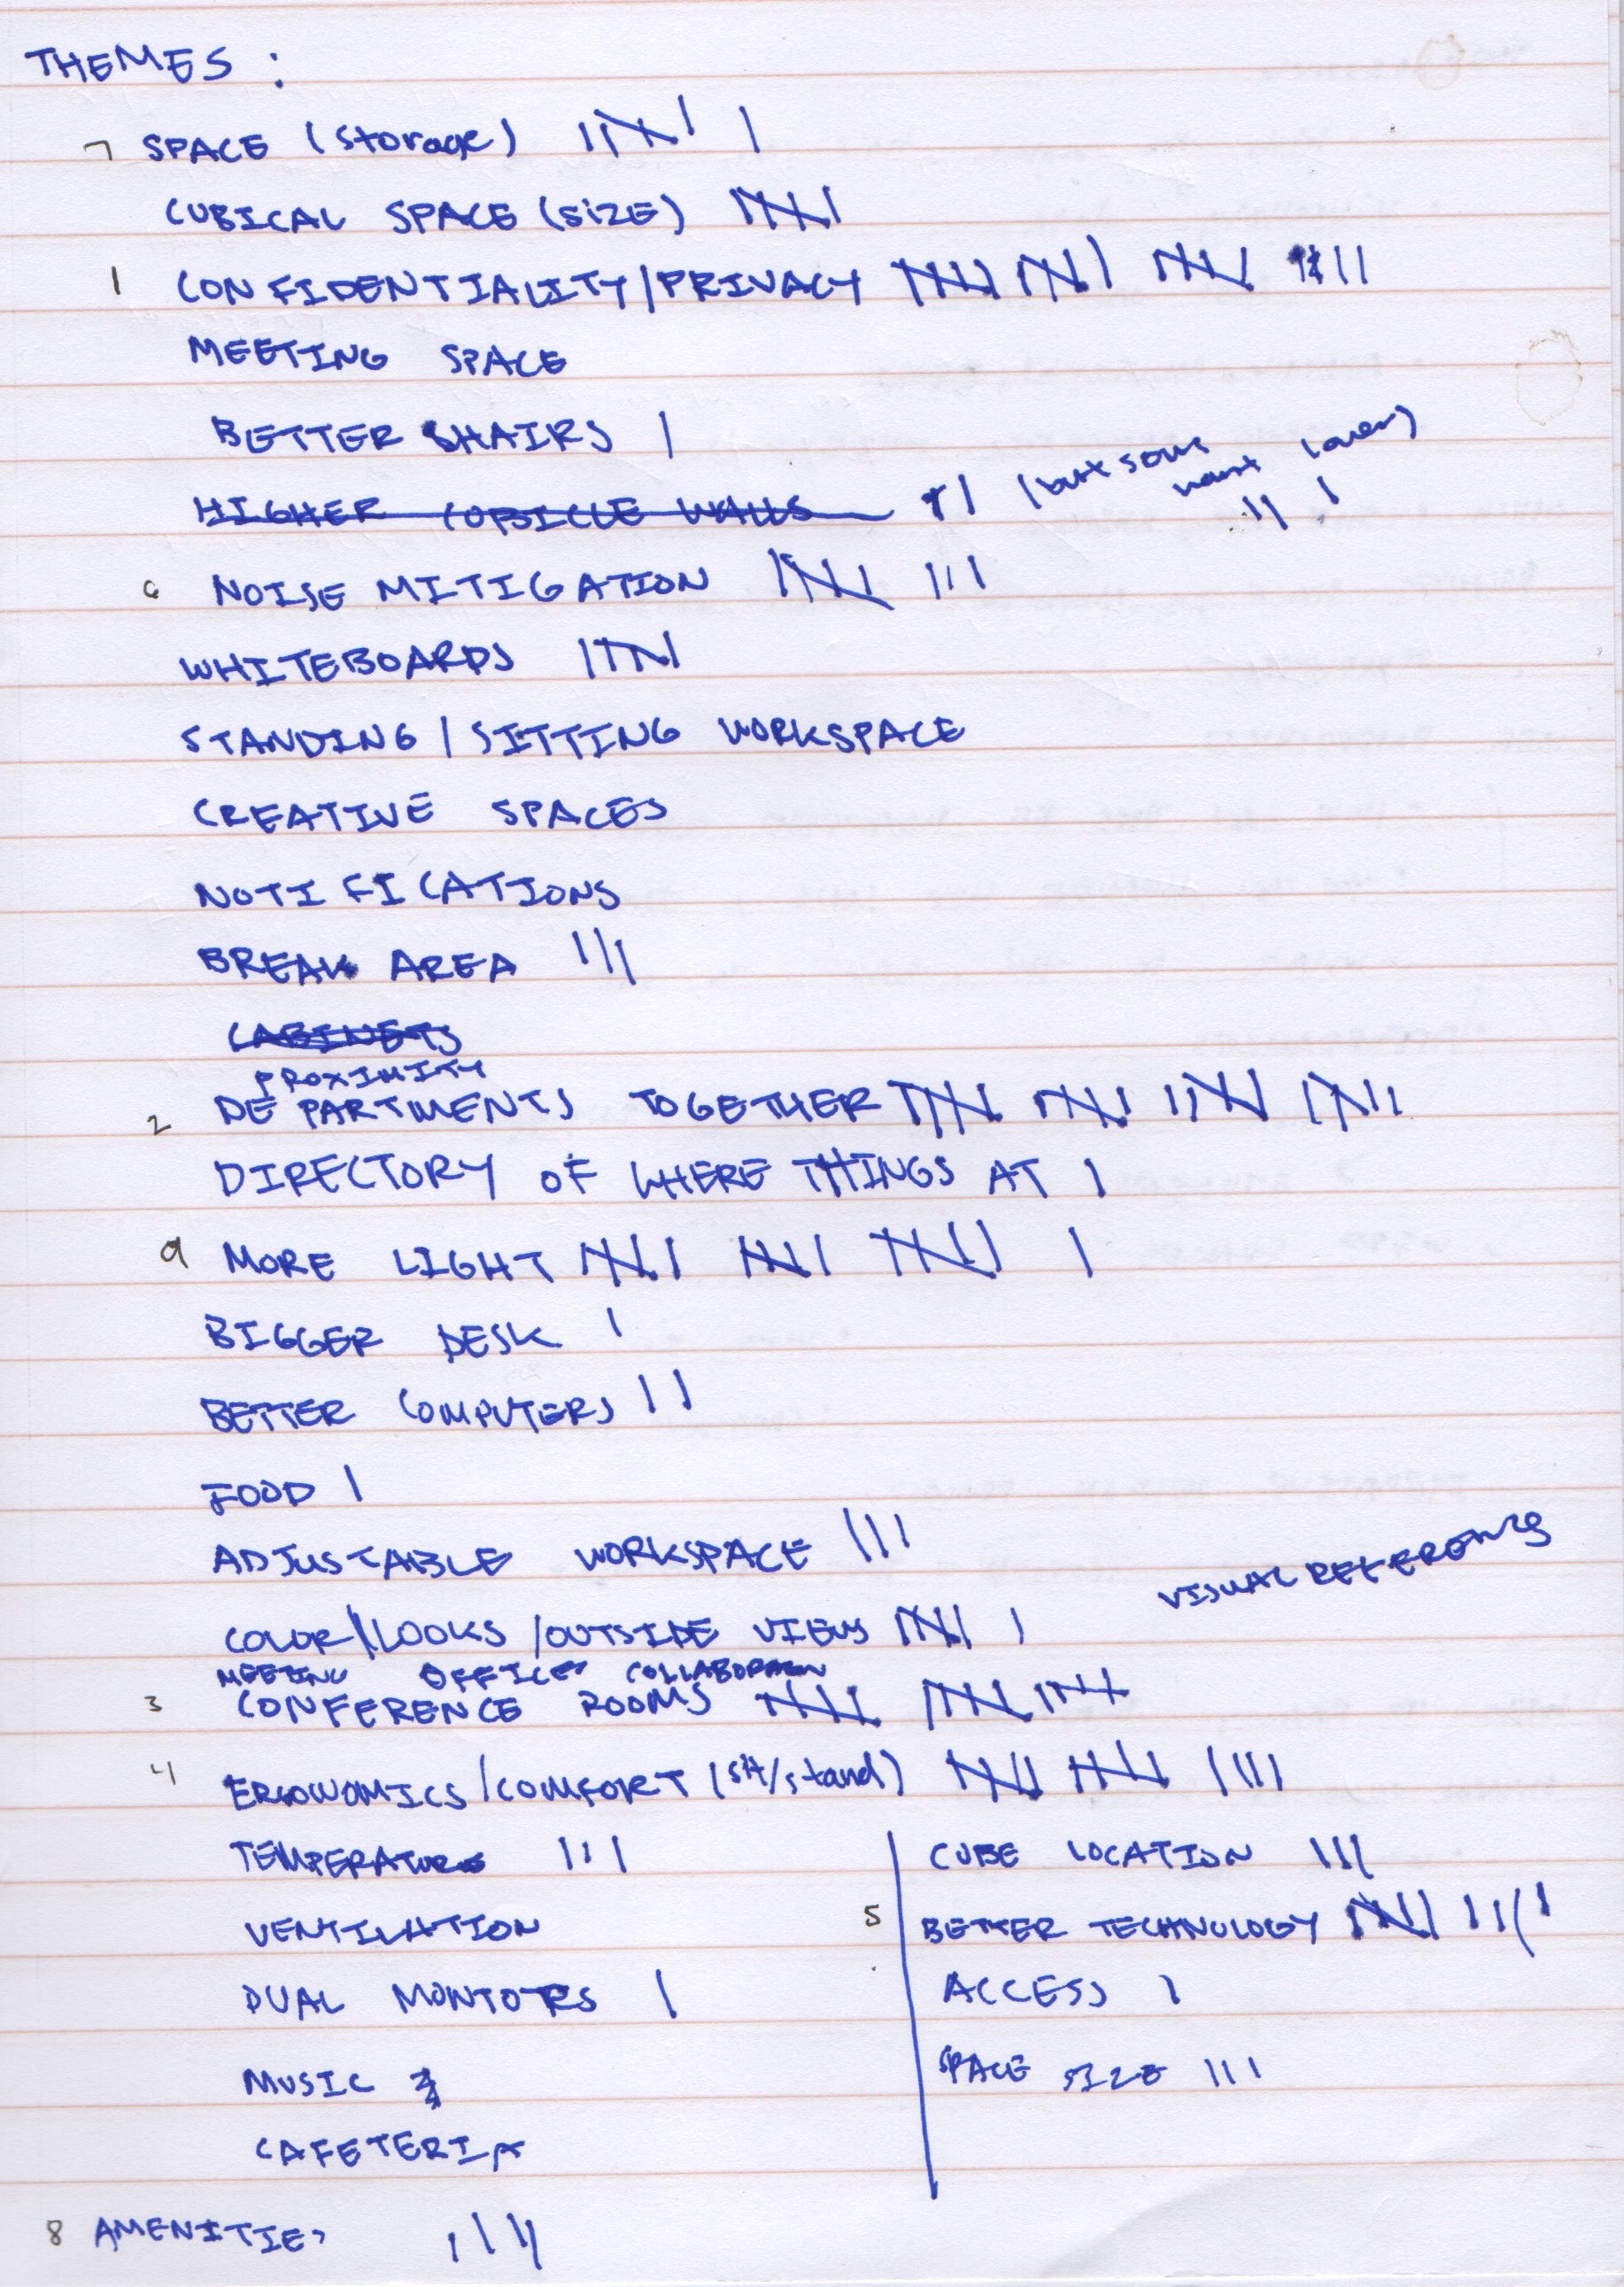 THEMES :
7 SPACE (storage) |||| |
CUBICAL SPACE (SIZE) ||||
1 CONFIDENTIALITY/PRIVACY |||| |||| |||| ||||
MEETING SPACE
BETTER CHAIRS |
HIGHER CUBICLE WALLS || (but some want lower) || |
6 NOISE MITIGATION |||| |||
WHITEBOARDS ||||
STANDING / SITTING WORKSPACE
CREATIVE SPACES
NOTIFICATIONS
BREAK AREA |||
CABINETS
PROXIMITY
2 DEPARTMENTS TOGETHER |||| |||| |||| ||||
DIRECTORY OF WHERE THINGS AT |
9 MORE LIGHT |||| |||| |||| |
BIGGER DESK |
BETTER COMPUTERS ||
FOOD |
ADJUSTABLE WORKSPACE |||
VISUAL REFERENCING
COLOR/LOOKS/OUTSIDE VIEWS |||| |
MEETING OFFICE COLLABORATION
3 CONFERENCE ROOMS |||| |||| ||||
4 ERGONOMICS/COMFORT (sit/stand) |||| |||| ||||
TEMPERATURE |||
VENTILATION
DUAL MONTORS |
MUSIC
CAFETERIA
CUBE LOCATION |||
5 BETTER TECHNOLOGY |||| ||||
ACCESS |
SPACE SIZE |||
8 AMENITIES ||||